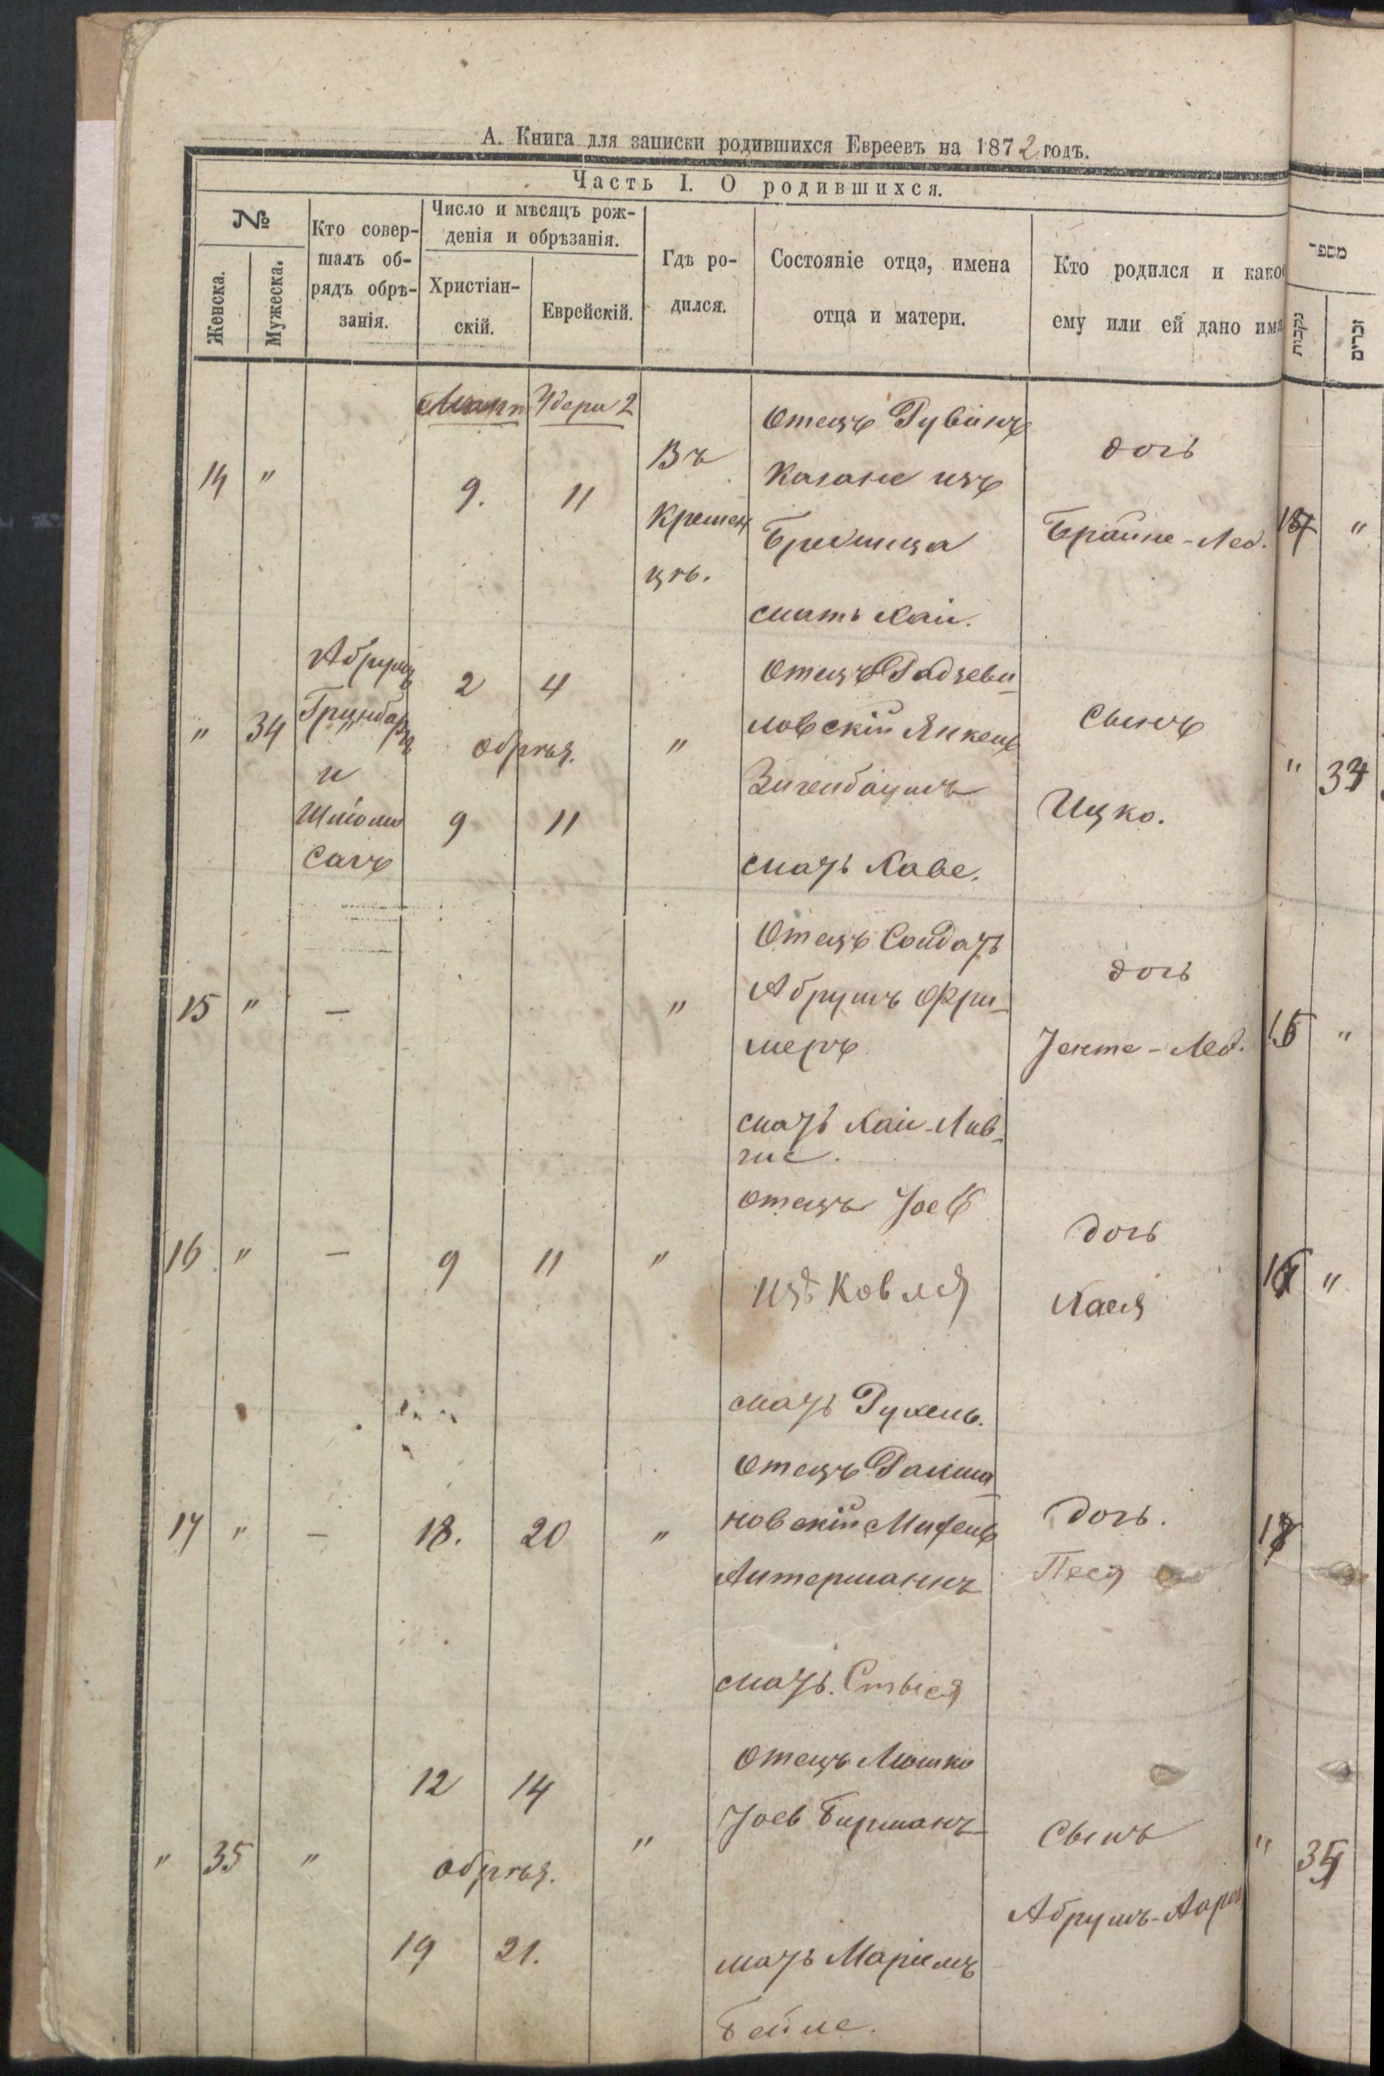 А. Книга для записки родившихся Евреевъ на 1872 годъ.
Часть I. О родившихся.
№
Женска.
Мужеска.
Кто совер-
шалъ об-
рядъ обрѣ-
занія.
Число и мѣсяцъ рож-
денія и обрѣзанія.
Христіан-
скій.
Еврейскій.
Гдѣ ро-
дился.
Состояніе отца, имена
отца и матери.
Кто родился и како
ему или ей дано имя
מספר
נקבות
זכרים
Мартъ
Удери 2
14 "
9.
11
Въ
Кремен
цѣ.
Отецъ Рувинъ
Кагане изъ
мать Хаи.
дочь
Брайне-Леа.
"
" 34
Абрумъ
Гринбаргъ
и
Сагъ
2 4
обрѣз.
9 11
"
Отецъ Радзеви-
ловскій Янкель
Зигенбаумъ
мать Хаве.
сынъ
Ицко.
" 34
15 " —
"
Отецъ Солдатъ
Абрумъ Фри-
меръ
мать Хаи-Лив-
ше.
дочь
Генте-Леа.
15 "
16 " —
9 11
"
отецъ Іось
изъ Ковля
мать Рухень.
дочь
Хаея
16 "
17 " —
18. 20
"
отецъ Рахма-
новскій Михель
Антерманнъ
мать Стыся
дочь.
Песя
" 35 "
12 14
обрѣз.
19 21.
"
отецъ Мошко
Іоев Бирманъ
мать Маріимъ
Бейле.
сынъ
Абрумъ-Аарон
" 35